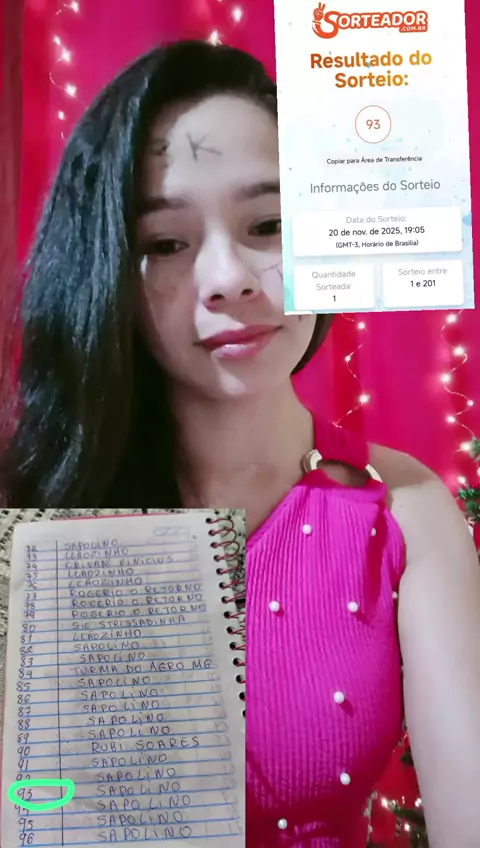 SORTEADOR
.COM.BR
Resultado do
Sorteio:
93
Copiar para Área de Transferência
Informações do Sorteio
Data do Sorteio:
20 de nov. de 2025, 19:05
(GMT-3, Horário de Brasília)
Quantidade
Sorteada:
1
Sorteio entre
1 e 201
K
72 SAPOLINO
73 LEAOZINHO
74 VINICIUS
75 LEAOZINHO
76 LEAOZINHO
77 ROGERIO O RETORNO
78 ROGERIO O RETORNO
79 ROGERIO O RETORNO
80 STRESSADINHA
81 LEAOZINHO
82 SAPOLINO
83 SAPOLINO
84 TURMA DO AGRO MG
85 SAPOLINO
86 SAPOLINO
87 SAPOLINO
88 SAPOLINO
89 SAPOLINO
90 RUBI SOARES
91 SAPOLINO
92 SAPOLINO
93 SAPOLINO
94 SAPOLINO
95 SAPOLINO
96 SAPOLINO